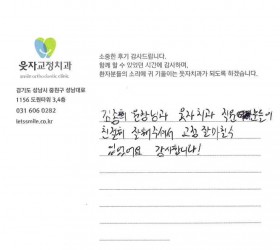 웃자교정치과
smile orthodontic clinic
경기도 성남시 중원구 성남대로
1126 도원타워 3,4층
031 606 0282
letssmile.co.kr
소중한 후기 감사드립니다.
함께 할 수 있었던 시간에 감사하며,
환자분들의 소리에 귀 기울이는 웃자치과가 되도록 하겠습니다.
원장님과 웃자치과 직원분들이
친절히 잘해주셔서 교정
있었어요 감사합니다!